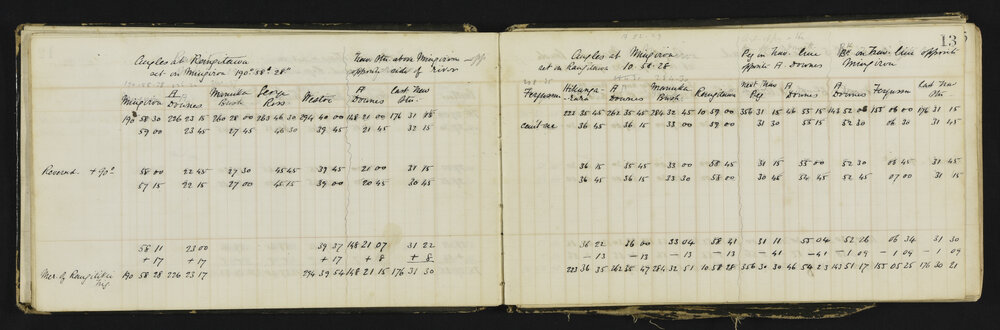 Angles at Rangitawa
set on Mingiron 190° 58' 28"
Trav Stn above Mingiron
opposite side of river
Mingiron A Downes Manuka Bush George Ross Weston A Downes last Trav Stn
190 58 30 226 23 15 260 28 00 263 46 30 294 40 00 148 21 00 176 31 15
59 00 23 45 27 45 46 30 39 45 21 45 32 15
Reversed + 90° 58 00 22 45 27 30 45 45 39 45 21 00 31 15
57 15 22 15 27 00 45 15 39 00 20 45 30 45
58 11 23 00 39 37 148 21 07 31 22
+ 17 + 17 + 17 + 8 + 8
Mer of Rangitawa Trig 190 58 28 226 23 17 294 39 54 148 21 15 176 31 30
13
Angles at Mingiron
set on Rangitawa 10. 58. 28
Peg on Trav. line
opposite A Downes
Peg on Trav. line opposite
Mingiron
Ferguson A Downes Manuka Bush Rangitawa next Trav Peg A Downes A Downes Ferguson last Trav Stn
223 35 45 262 35 45 284 32 45 10 59 00 356 31 15 46 55 15 143 52 155 06 00 176 31 15
can't see 36 45 36 15 33 00 59 00 31 30 55 15 52 30 06 30 31 45
36 15 35 45 33 00 58 45 31 15 55 00 52 30 06 45 31 45
36 45 36 15 33 30 58 00 30 45 54 45 52 45 07 00 31 15
36 22 36 00 33 04 58 41 31 11 55 04 52 26 06 34 31 30
— 13 — 13 — 13 — 13 — 41 — 41 — 1 09 — 1 09 — 1 09
223 36 35 262 35 47 284 32 51 10 58 28 356 30 30 46 54 23 143 51 17 155 05 25 176 30 21